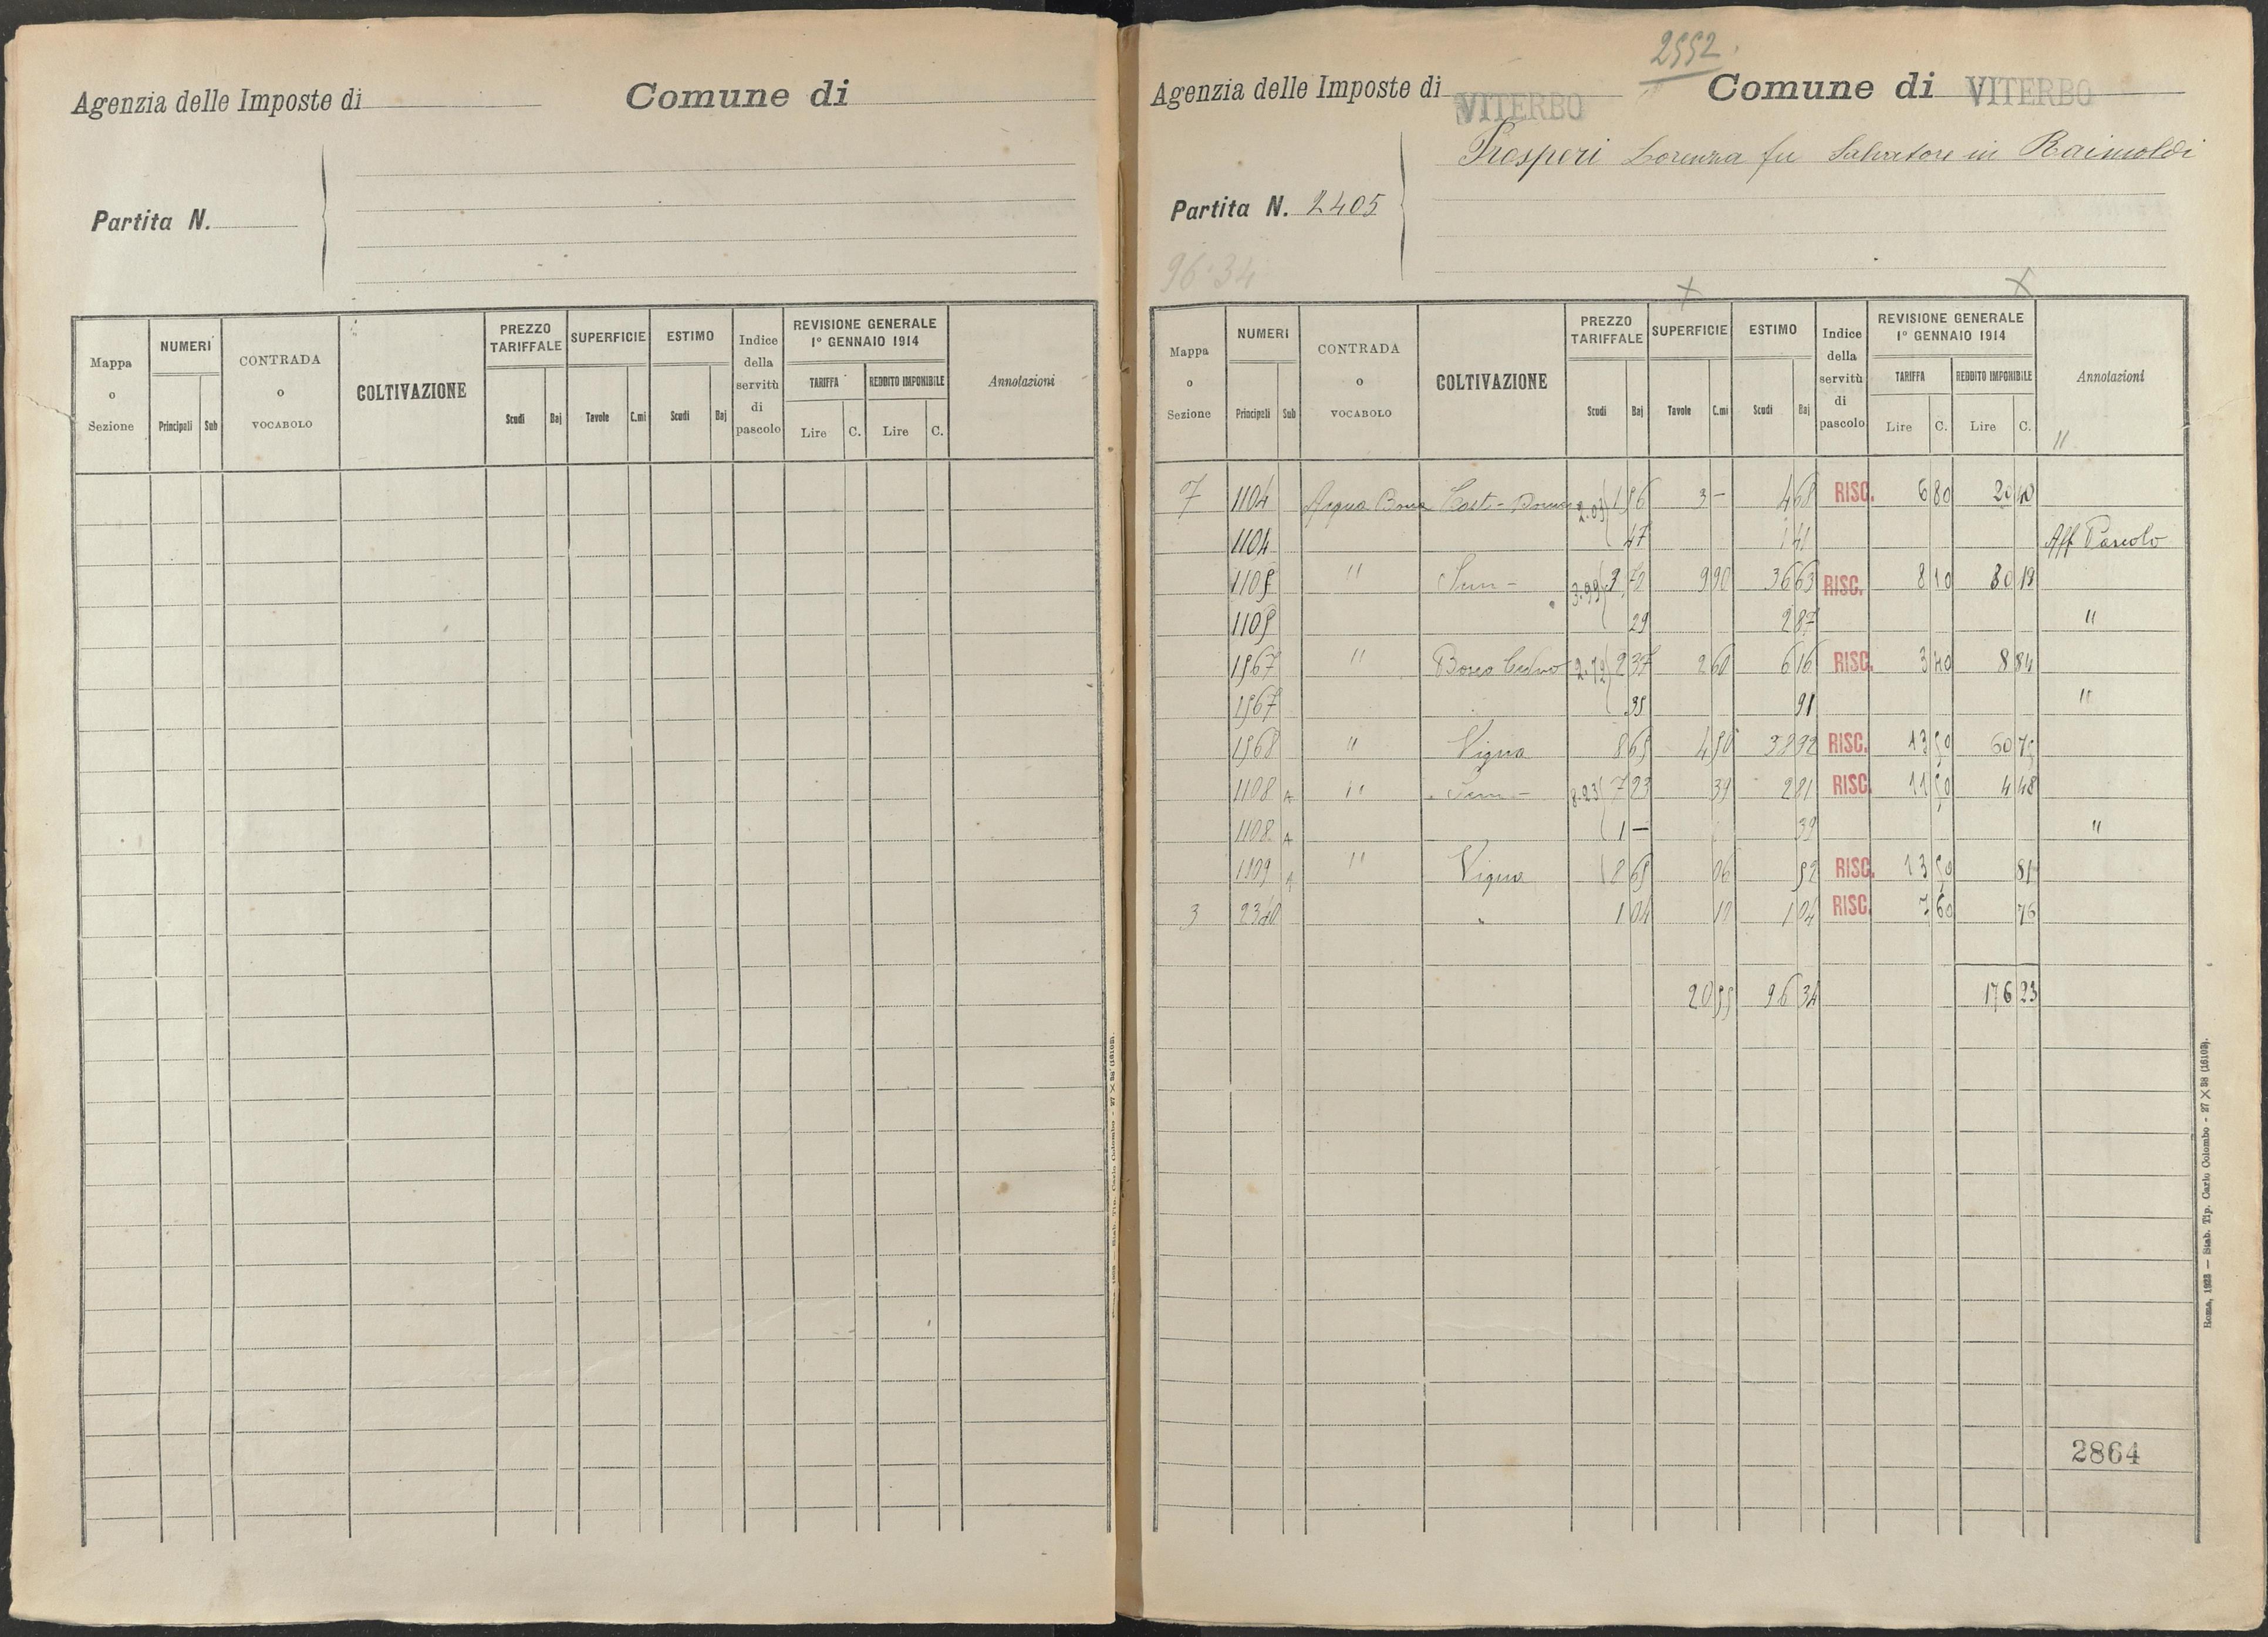 Agenzia delle Imposte di
Comune di
Partita N.
Mappa o Sezione | NUMERI Principali Sub | CONTRADA o VOCABOLO | COLTIVAZIONE | PREZZO TARIFFALE Scudi Baj | SUPERFICIE Tavole C.mi | ESTIMO Scudi Baj | Indice della servitù di pascolo | REVISIONE GENERALE 1° GENNAIO 1914 TARIFFA Lire C. REDDITO IMPONIBILE Lire C. | Annotazioni
27 X 38 (16103).
2552
Agenzia delle Imposte di VITERBO
Comune di VITERBO
Prosperi Lorenza fu Salvatore in Raimoldi
Partita N. 2405
96.34
X X
Mappa o Sezione | NUMERI Principali Sub | CONTRADA o VOCABOLO | COLTIVAZIONE | PREZZO TARIFFALE Scudi Baj | SUPERFICIE Tavole C.mi | ESTIMO Scudi Baj | Indice della servitù di pascolo | REVISIONE GENERALE 1° GENNAIO 1914 TARIFFA Lire C. REDDITO IMPONIBILE Lire C. | Annotazioni
"
7 | 1104 | Acqua Bona | Cast- | 2.03 | 1 56 | 3 – | 4 68 | RISC. | 6 80 | 20 40
1104 | 47 | 1 41 | Aff Pascolo
1105 | " | Sem– | 3.99 | 3 70 | 9 90 | 36 63 | RISC. | 8 10 | 80 19
1105 | 29 | 2 87 | "
1567 | " | Bosco Ceduo | 2.72 | 2 37 | 2 60 | 6 16 | RISC. | 3 40 | 8 84
1567 | 35 | 91 | "
1568 | " | Vigna | 8 65 | 4 50 | 38 92 | RISC. | 13 50 | 60 75
1108 A | " | Sem– | 8.23 | 7 23 | 39 | 2 81 | RISC. | 11 50 | 4 48
1108 A | 1 – | 39 | "
1109 A | " | Vigna | 8 65 | 06 | 52 | RISC. | 13 50 | 81
3 | 2340 | 1 04 | 10 | 1 04 | RISC. | 7 60 | 76
20 55 | 96 34 | 176 23
2864
Roma, 1923 — Stab. Tip. Carlo Colombo - 27 X 38 (16103).